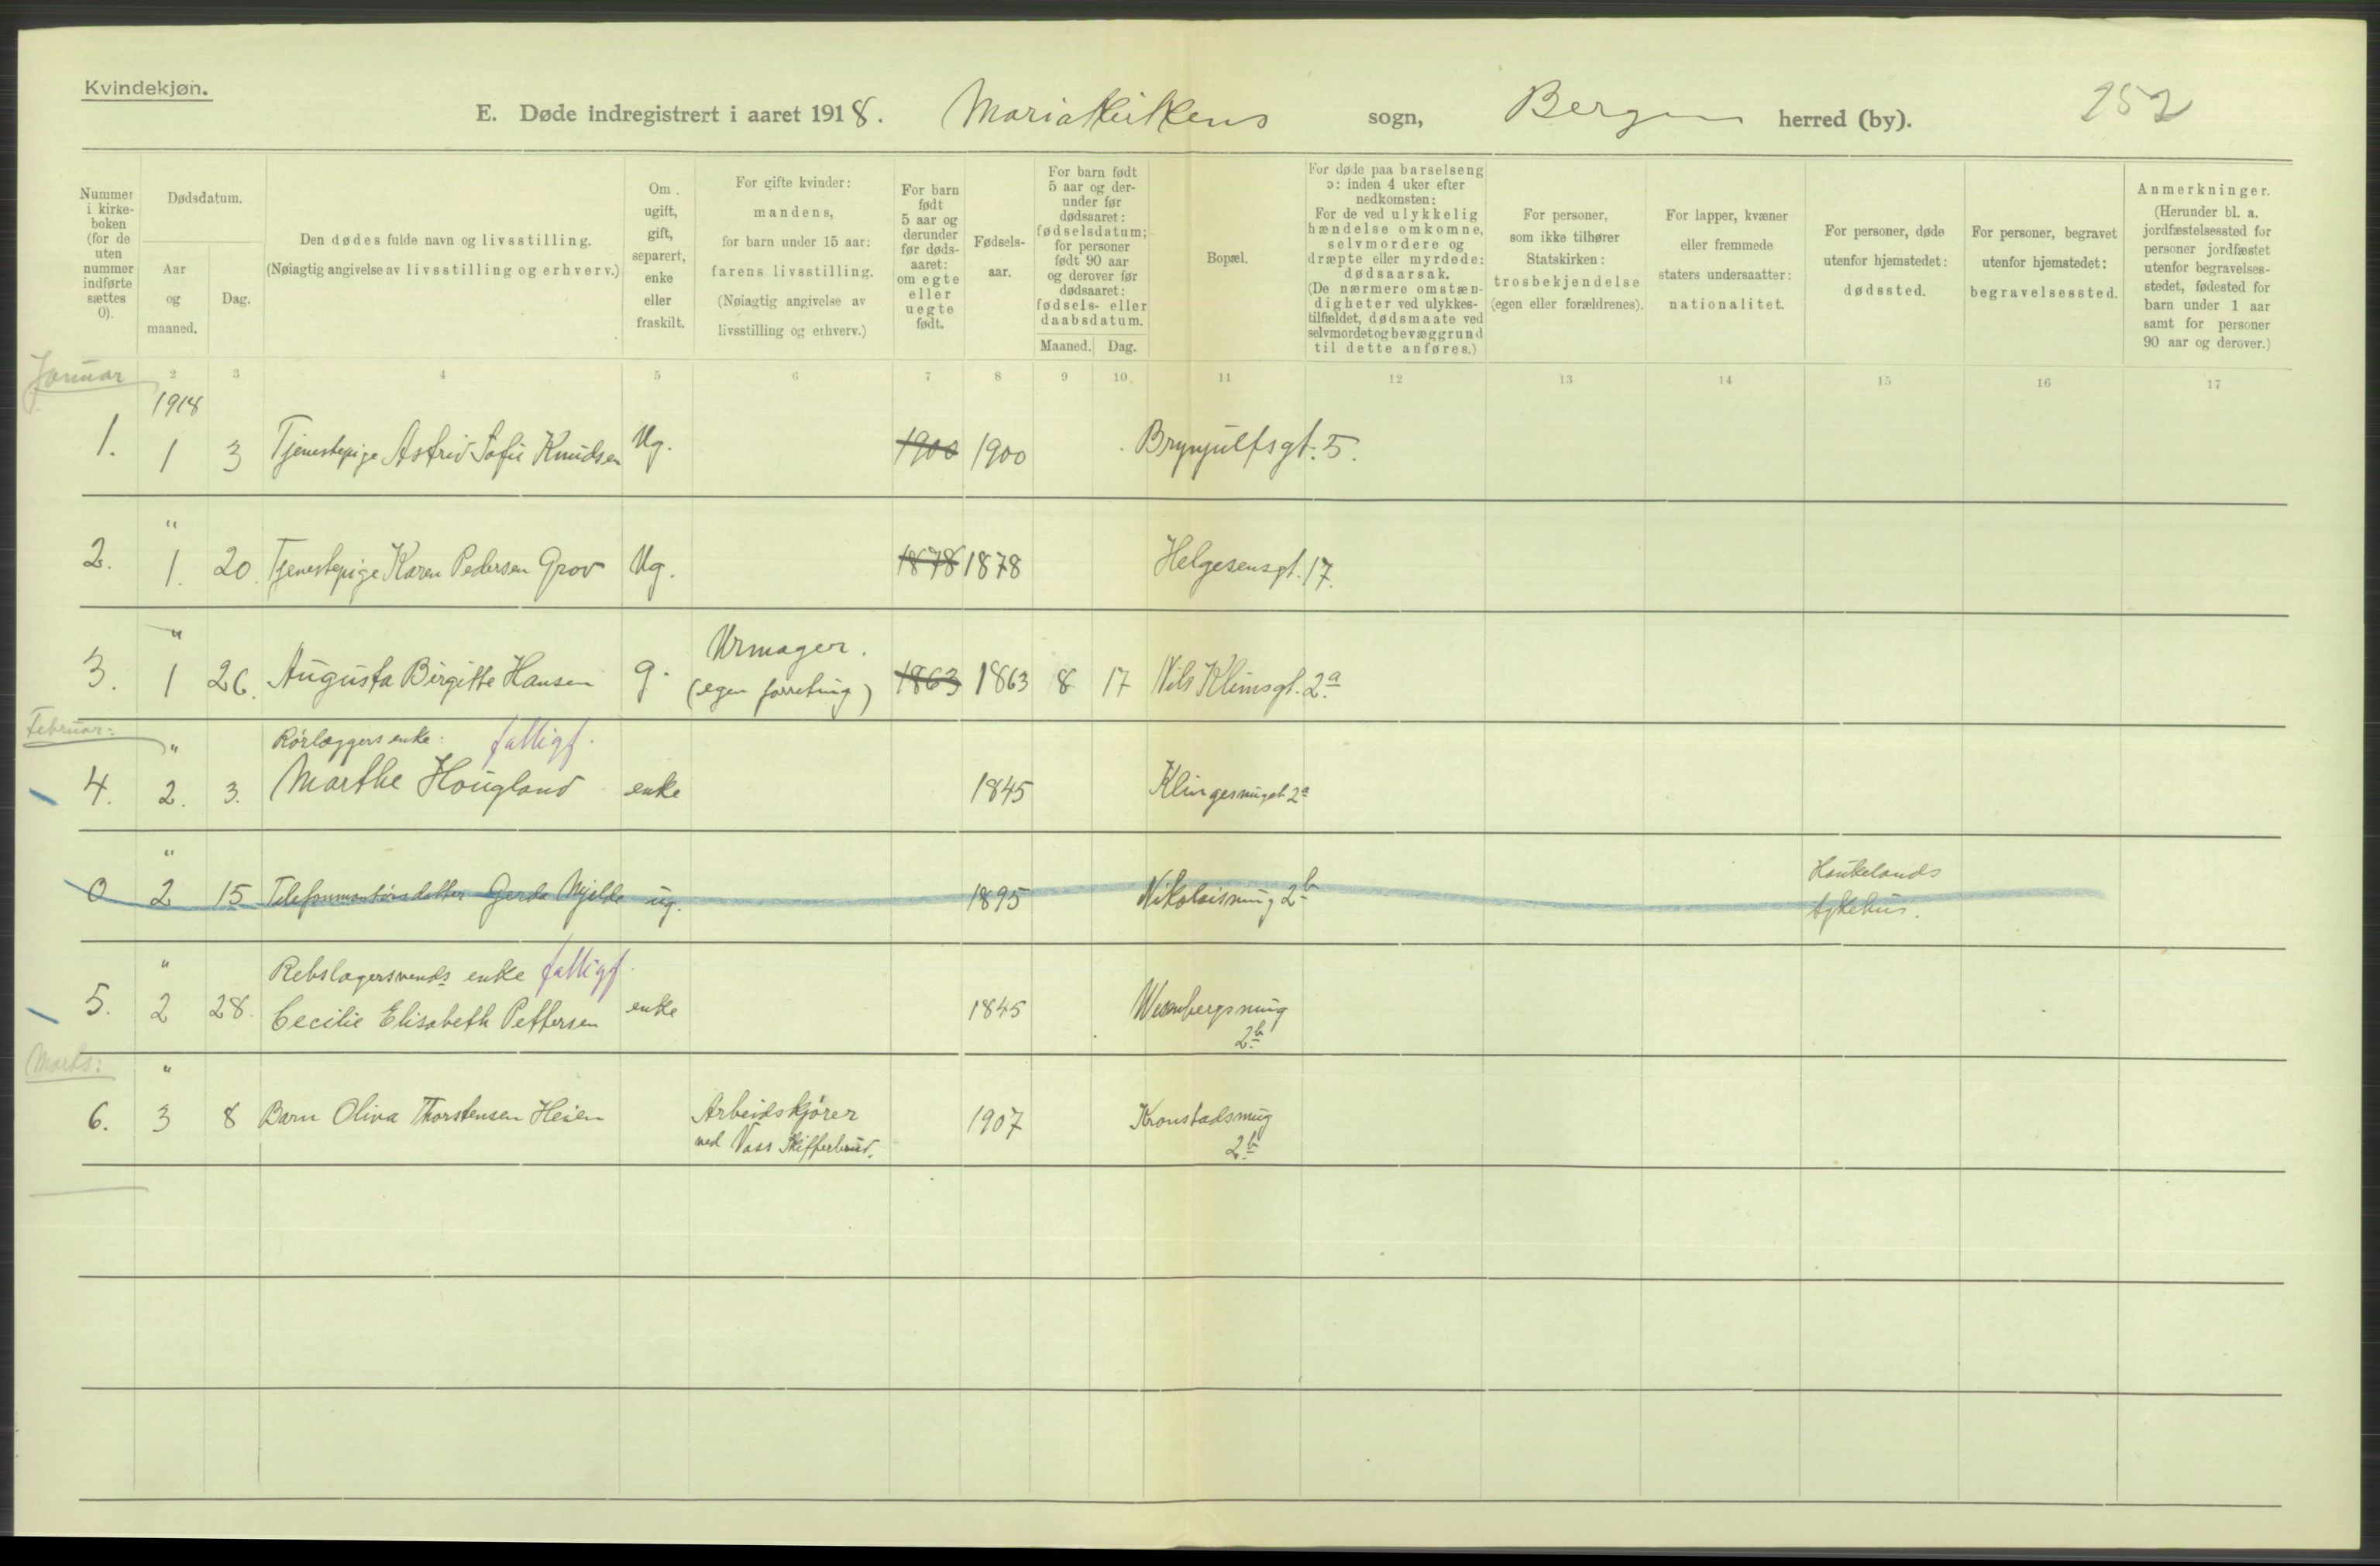 Kvindekjøn.
E. Døde indregistrert i aaret 1918. Mariakirkens sogn, Bergen herred (by). 252
Nummer i kirkeboken (for de uten nummer indførte sættes 0).
Dødsdatum.
Aar og maaned.
Dag.
Den dødes fulde navn og livsstilling.
(Nøiagtig angivelse av livsstilling og erhverv.)
Om ugift, gift, separert, enke eller fraskilt.
For gifte kvinder: mandens, for barn under 15 aar: farens livsstilling. (Nøiagtig angivelse av livsstilling og erhverv.)
For barn født 5 aar og derunder før dødsaaret: om egte eller uegte født.
Fødselsaar.
For barn født 5 aar og derunder før dødsaaret: fødselsdatum; for personer født 90 aar og derover før dødsaaret: fødsels- eller daabsdatum.
Maaned. Dag.
Bopæl.
For døde paa barselseng ɔ: inden 4 uker efter nedkomsten: For de ved ulykkelig hændelse omkomne, selvmordere og dræpte eller myrdede: dødsaarsak. (De nærmere omstændigheter ved ulykkestilfældet, dødsmaate ved selvmordet og bevæggrund til dette anføres.)
For personer, som ikke tilhører Statskirken: trosbekjendelse (egen eller forældrenes).
For lapper, kvæner eller fremmede staters undersaatter: nationalitet.
For personer, døde utenfor hjemstedet: dødssted.
For personer, begravet utenfor hjemstedet: begravelsessted.
Anmerkninger. (Herunder bl. a. jordfæstelsessted for personer jordfæstet utenfor begravelsesstedet, fødested for barn under 1 aar samt for personer 90 aar og derover.)
Januar 2 3 4 5 6 7 8 9 10 11 12 13 14 15 16 17
1918
1. 1 3 Tjenestepige Astrid Sofie Knudsen Ug. 1900 1900 Brynjulfsgt. 5.
"
2. 1. 20. Tjenestepige Karen Pedersen Grov Ug. 1878 1878 Helgesensgt. 17.
" Urmager.
3. 1 26. Augusta Birgitte Hansen g. (egen forretning) 1863 1863 8 17 Nils Klimsgt. 2a
Februar: " Rørlæggers enke: fattigf.
4. 2. 3. Marthe Hougland enke 1845 Klingesmuget 2a
" Haukelands
0 2 15 Telefonmontørsdatter Gerda Mjelde ug. 1895 Nikolaismug 2b sykehus.
" Rebslagersvends enke fattigf.
5. 2 28. Cecilie Elisabeth Pettersen enke 1845 Wesenbergsmug
2b
Marts: "
6. 3 8 Barn Oliva Thorstensen Heien Arbeidskjører 1907 Kronstadsmug
ved Voss Skifferbrud. 2b